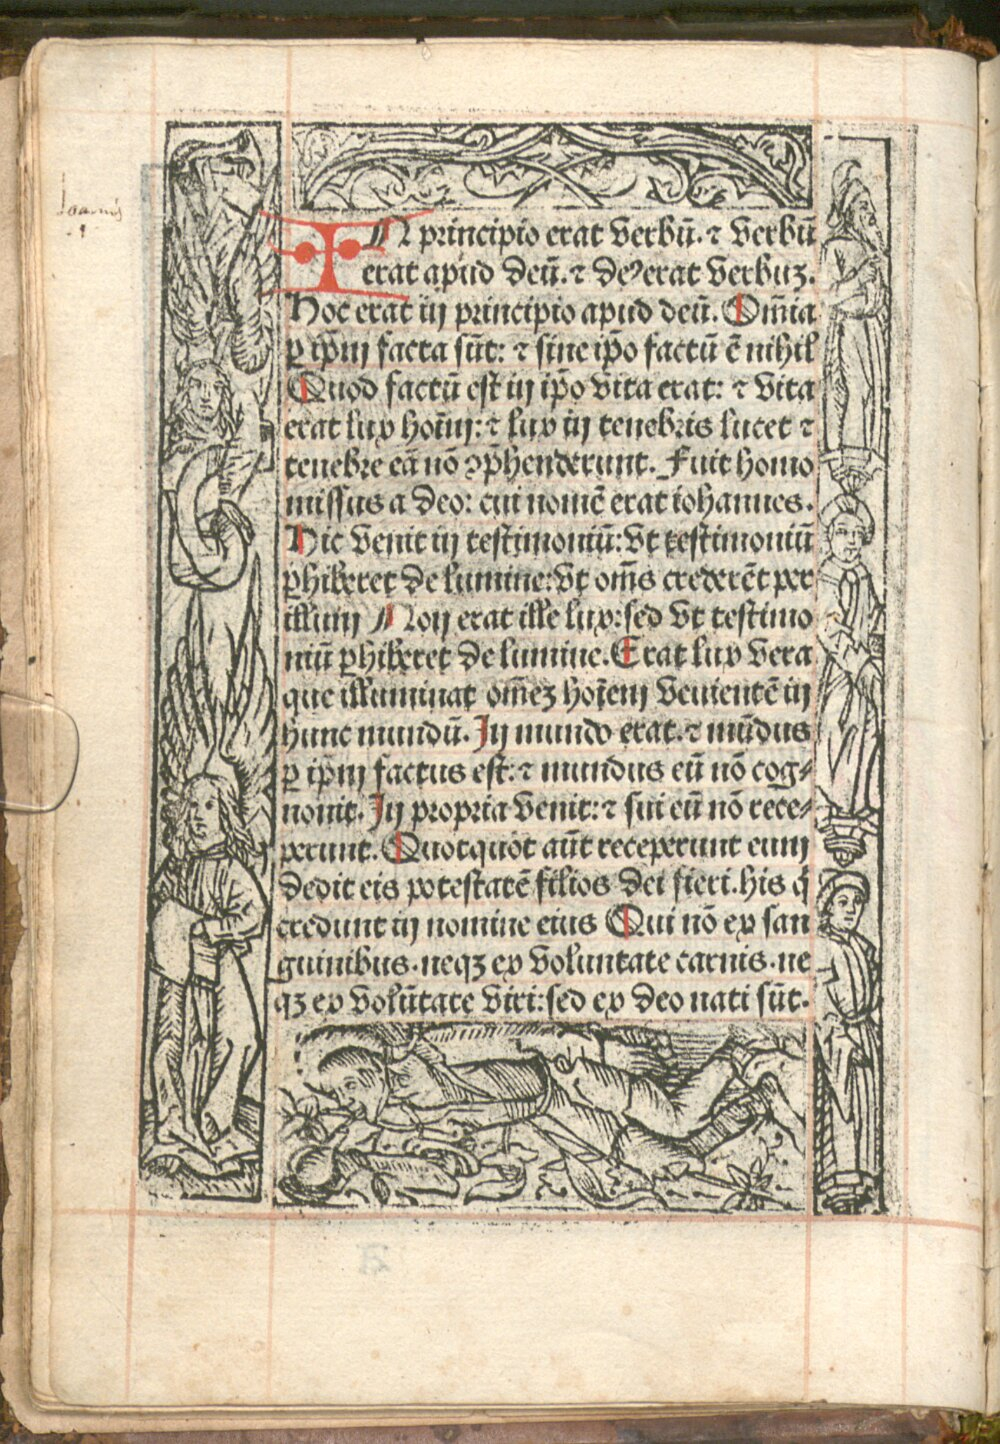 Joannis
1
IN principio erat verbū. ⁊ verbū
erat apud deū. ⁊ deꝰ erat verbuꝫ.
Hoc erat in principio apud deū. Om̄ia
ꝑ ip̄m facta sūt: ⁊ sine ip̄o factū ē nihil
Quod factū est in ip̄o vita erat: ⁊ vita
erat lux hoīm: ⁊ lux in tenebris lucet ⁊
tenebre eā nō ↄp̄henderunt. Fuit homo
missus a deo: cui nomē erat iohannes.
Hic venit in testimoniū: vt testimoniū
ꝑhiberet de lumine: vt om̄s crederēt per
illum Non erat ille lux: sed vt testimo
niū ꝑhiberet de lumine. Erat lux vera
que illuminat om̄eꝫ hoīem venientē in
hunc mundū. In mundo erat. ⁊ mūdus
ꝑ ip̄m factus est: ⁊ mundus eū nō cog⸗
nouit. In propria venit: ⁊ sui eū nō rece⸗
perunt. Quotquot aūt receperunt eum
dedit eis potestatē filios dei fieri. his q̄
credunt in nomine eius Qui nō ex san
guinibus. neqꝫ ex voluntate carnis. ne
qꝫ ex volūtate viri: sed ex deo nati sūt.